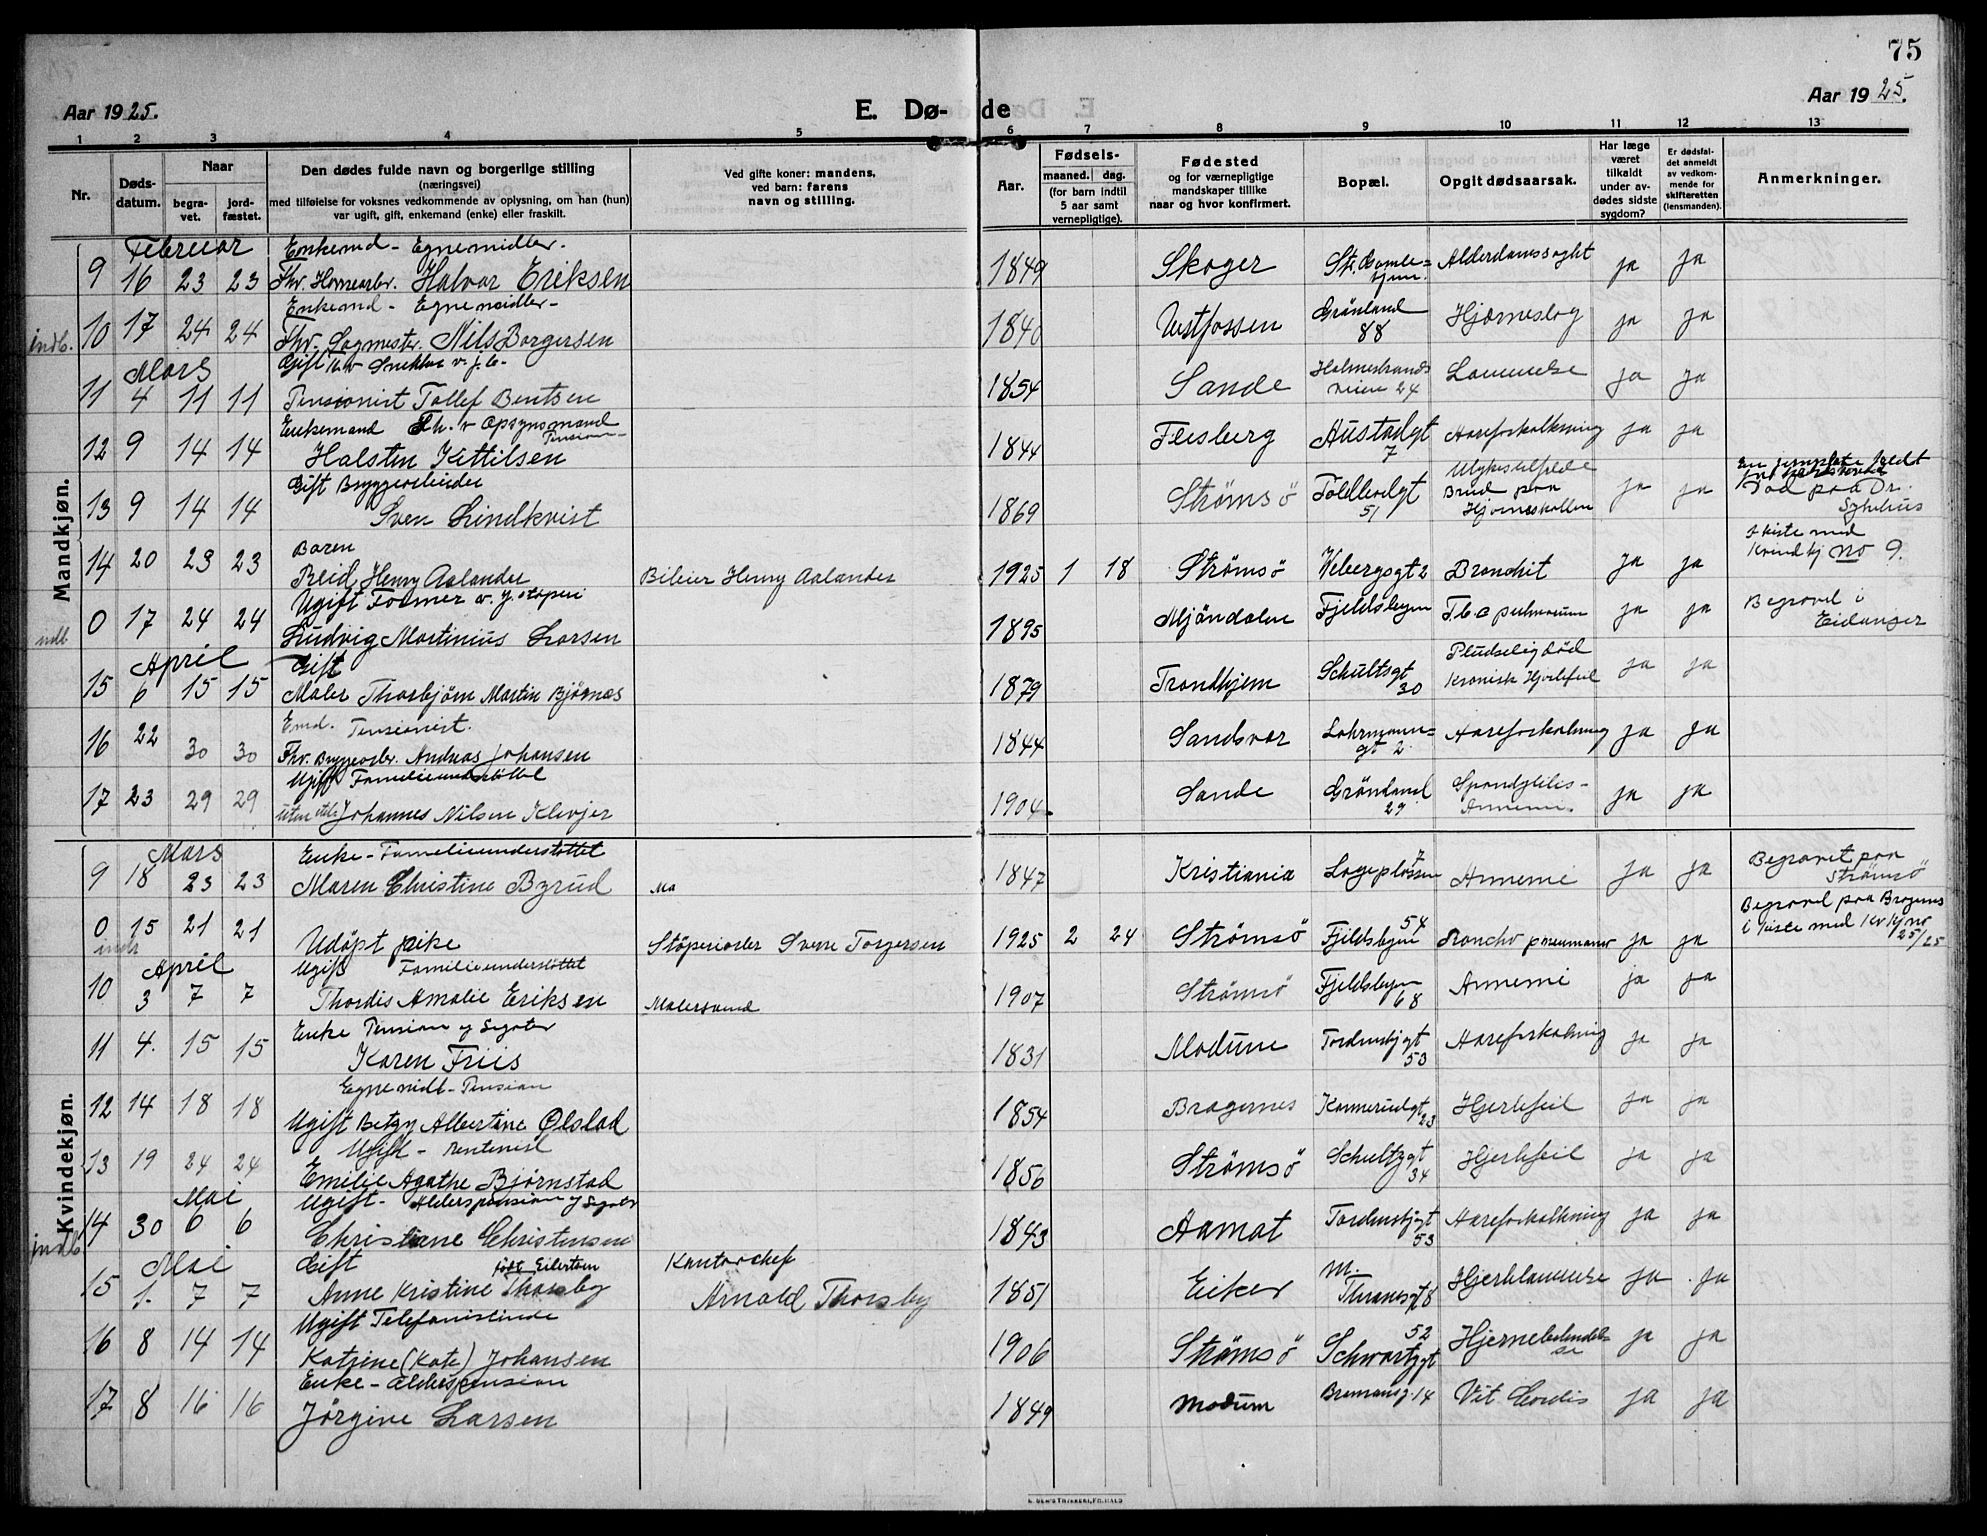 75
Aar 1925.
E. Dø-
de
Aar 1925.
1 2 3 4 5 6 7 8 9 10 11 12 13
Nr.
Døds-
datum.
Naar
begra-
vet.
jord-
fæstet.
Den dødes fulde navn og borgerlige stilling
(næringsvei)
med tilføielse for voksnes vedkommende av oplysning, om han (hun)
var ugift, gift, enkemand (enke) eller fraskilt.
Ved gifte koner: mandens,
ved barn: farens
navn og stilling.
Aar.
Fødsels-
maaned. dag.
(for barn indtil
5 aar samt
vernepligtige).
Fødested
og for værnepligtige
mandskaper tillike
naar og hvor konfirmert.
Bopæl.
Opgit dødsaarsak.
Har læge
været
tilkaldt
under av-
dødes sidste
sygdom?
Er dødsfal-
det anmeldt
av vedkom-
mende for
skifteretten
(lensmanden).
Anmerkninger.
Mandkjøn.
Februar Enkemd - Egne midler.
9 16 23 23 Fhv. Halvor Eriksen 1849 Skoger Alderdomssvakht ja ja
Enkemd - Egne midler -
indb. 10 17 24 24 Fhv. Sagmester. Nils Borgersen 1840 Vestfossen Grönland 88 Hjærneslag ja ja
Mars Gift
11 4 11 11 Pensionist Tollef Bentsen 1854 Sande Holmestrands veien 24 Lammelse ja ja
Enkemand Fhv. Opsynsmand Pension
12 9 14 14 Halsten Kittilsen 1844 Flesberg Austadgt 7 Aareforkalkning ja ja
Gift Bryggearbeider
13 9 14 14 Sven Lindkvist 1869 Strømsö Toldbodgt 51 Ulykkestilfelde Brud paa Hjerneskallen ja ja
Baren
14 20 23 23 Reid Henry Aalander Bileier Henry Aalander 1925 1 18 Strømsö Vebergsgt 2 Bronchit ja ja I kiste med Kvindkj no 9.
Ugift Former v. J. støperi
indb 0 17 24 24 Ludvig Martinius Larsen 1895 Mjöndalen Fjeldsbyen T.b.c pulmorum ja ja Begravet i Eidanger
April Gift
15 6 15 15 Maler Thorbjørn Martin Bjørnes 1879 Trondhjem Schultsgt 30 Pludselig död Kronisk Hjertefeil ja ja
Emd. Pensionist.
16 22 30 30 Fhv. Bryggearb. Andreas Johansen 1844 Sandsvær Lohrmanns= gt 2 Aareforkalkning ja ja
Ugift Familieunderstöttet
17 23 29 29 Johannes Nilsen Klevjer 1904 Sande Grönland 29 ja ja
Kvindekjøn.
Mars Enke - Familieunderstøttet
9 18 23 23 Maren Christine Byrud Ma 1847 Kristiania Lageplassen 7 Annemi ja ja Begravet paa Strömsö
0 15 21 21 Udöpt pike Stöperiarb Sverre Torgersen 1925 2 24 Strømsö Fjeldsbyen 54 Broncho pneumoni ja ja Begravet paa Bragernes i kiste med Kv kj no 25/25
April Ugift Familieunderstøttet
10 3 7 7 Thordis Amalie Eriksen Malersvend 1907 Strømsö Fjeldsbyen 68 Annemi ja ja
Enke Pension og Legater
11 4. 15 15 Karen Friis 1831 Modum Tordenskjgt 53 Aareforkalkning ja ja
Egne midl - Pension
12 14 18 18 Ugift Betzy Albertine Ølstad 1854 Bragernes 23 Hjertefeil ja ja
Ugift - Rentenist
13 19 24 24 Emilie Agathe Bjørnstad 1856 Strømsö Schultzgt 34 Hjertefeil ja ja
Mai Ugift - Alderspension og Legater
indb 14 30 6 6 Christiane Christensen 1843 Aamot Tordenskjgt 53 Aareforkalkning ja ja
Mai Gift født Eilertsen Kontorchef
15 1. 7 7 Anne Kristine Thorsby Arnold Thorsby 1851 Eiker M. Thranesgt 8 Hjertelammelse ja ja
Ugift Telefonistinde
16 8 14 14 Katrine (Kate) Johansen 1906 Strømsö Schwartzgt 52 Hjernebetændelse ja ja
Enke - Alderspension
17 8 16 16 Jörgine Larsen 1849 Modum 14 Vit. Cordis ja ja